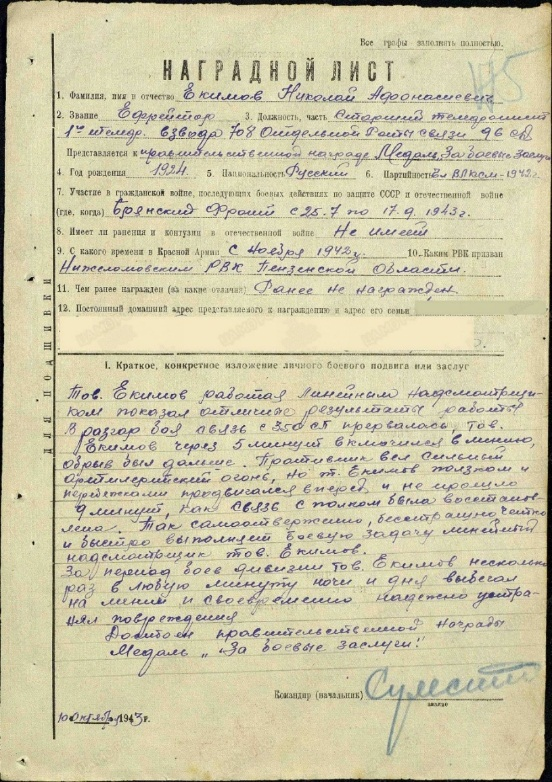 Все графы заполнять полностью.
175
НАГРАДНОЙ ЛИСТ
1. Фамилия, имя и отчество Екимов Николай Афонасиевич
2. Звание Ефрейтор 3. Должность, часть Старший телефонист
1го телеф. взвода 708 Отдельной Роты связи 96 СД
Представляется к правительственной награде Медаль „За боевые заслуги
4. Год рождения 1924 5. Национальность Русский 6. Партийность Чл ВЛКСМ-1942г
7. Участие в гражданской войне, последующих боевых действиях по защите СССР и отечественной войне
(где, когда) Брянский Фронт с 25.7 по 17.9.1943г.
8. Имеет ли ранения и контузии в отечественной войне Не имеет
9. С какого времени в Красной Армии с Ноября 1942г. 10. Каким РВК призван
Нижеломовским РВК Пензенской Области.
11. Чем ранее награжден (за какие отличия) Ранее не награжден.
12. Постоянный домашний адрес представляемого к награждению и адрес его семьи
ДЛЯ ПОДШИВКИ
I. Краткое, конкретное изложение личного боевого подвига или заслуг
Тов. Екимов работая линейным надсмотрщи-
ком показал отличные результаты работы
В разгар боя связь с 350 СП прервалась, тов.
Екимов через 5 минут включился в линию,
обрыв был дальше. Противник вел сильный
артилерийский огонь, но т. Екимов ползком и
перебежками продвигался вперед и не прошло
9 минут, как связь с полком была востанов-
лена. Так самоотвержено, бесстрашно четко
и быстро выполняет боевую задачу линейный
надсмотрщик тов. Екимов.
За период боев дивизии тов. Екимов несколько
раз в любую минуту ночи и дня выбегал
на линии и своевременно надежно устра-
нял повреждения
Достоен правительственной награды
Медаль „За боевые заслуги!"
Командир (начальник)
звание
10 октября 1943 г.